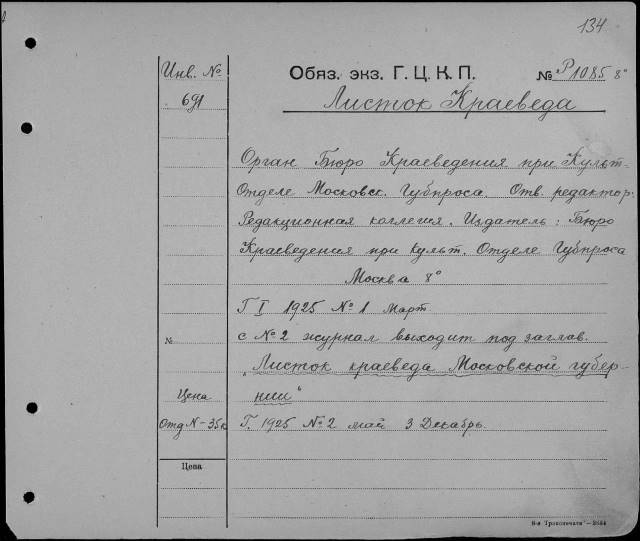 134
Инв. №
691
Обяз. экз. Г. Ц. К. П.
№ Р1085 8°
Листок Краеведа
Орган Бюро Краеведения при Культ-
Отделе Московск. Губпроса. Отв. редактор:
Редакционная коллегия. Издатель: Бюро
Краеведения при Культ. Отделе Губпроса
Москва 8°
Г I 1925 № 1 Март
№
с № 2 журнал выходит под заглав.
"Листок краеведа Московской губер-
Цена
нии"
Отд N - 35к
Г. 1925 № 2 май 3 Декабрь.
Цена